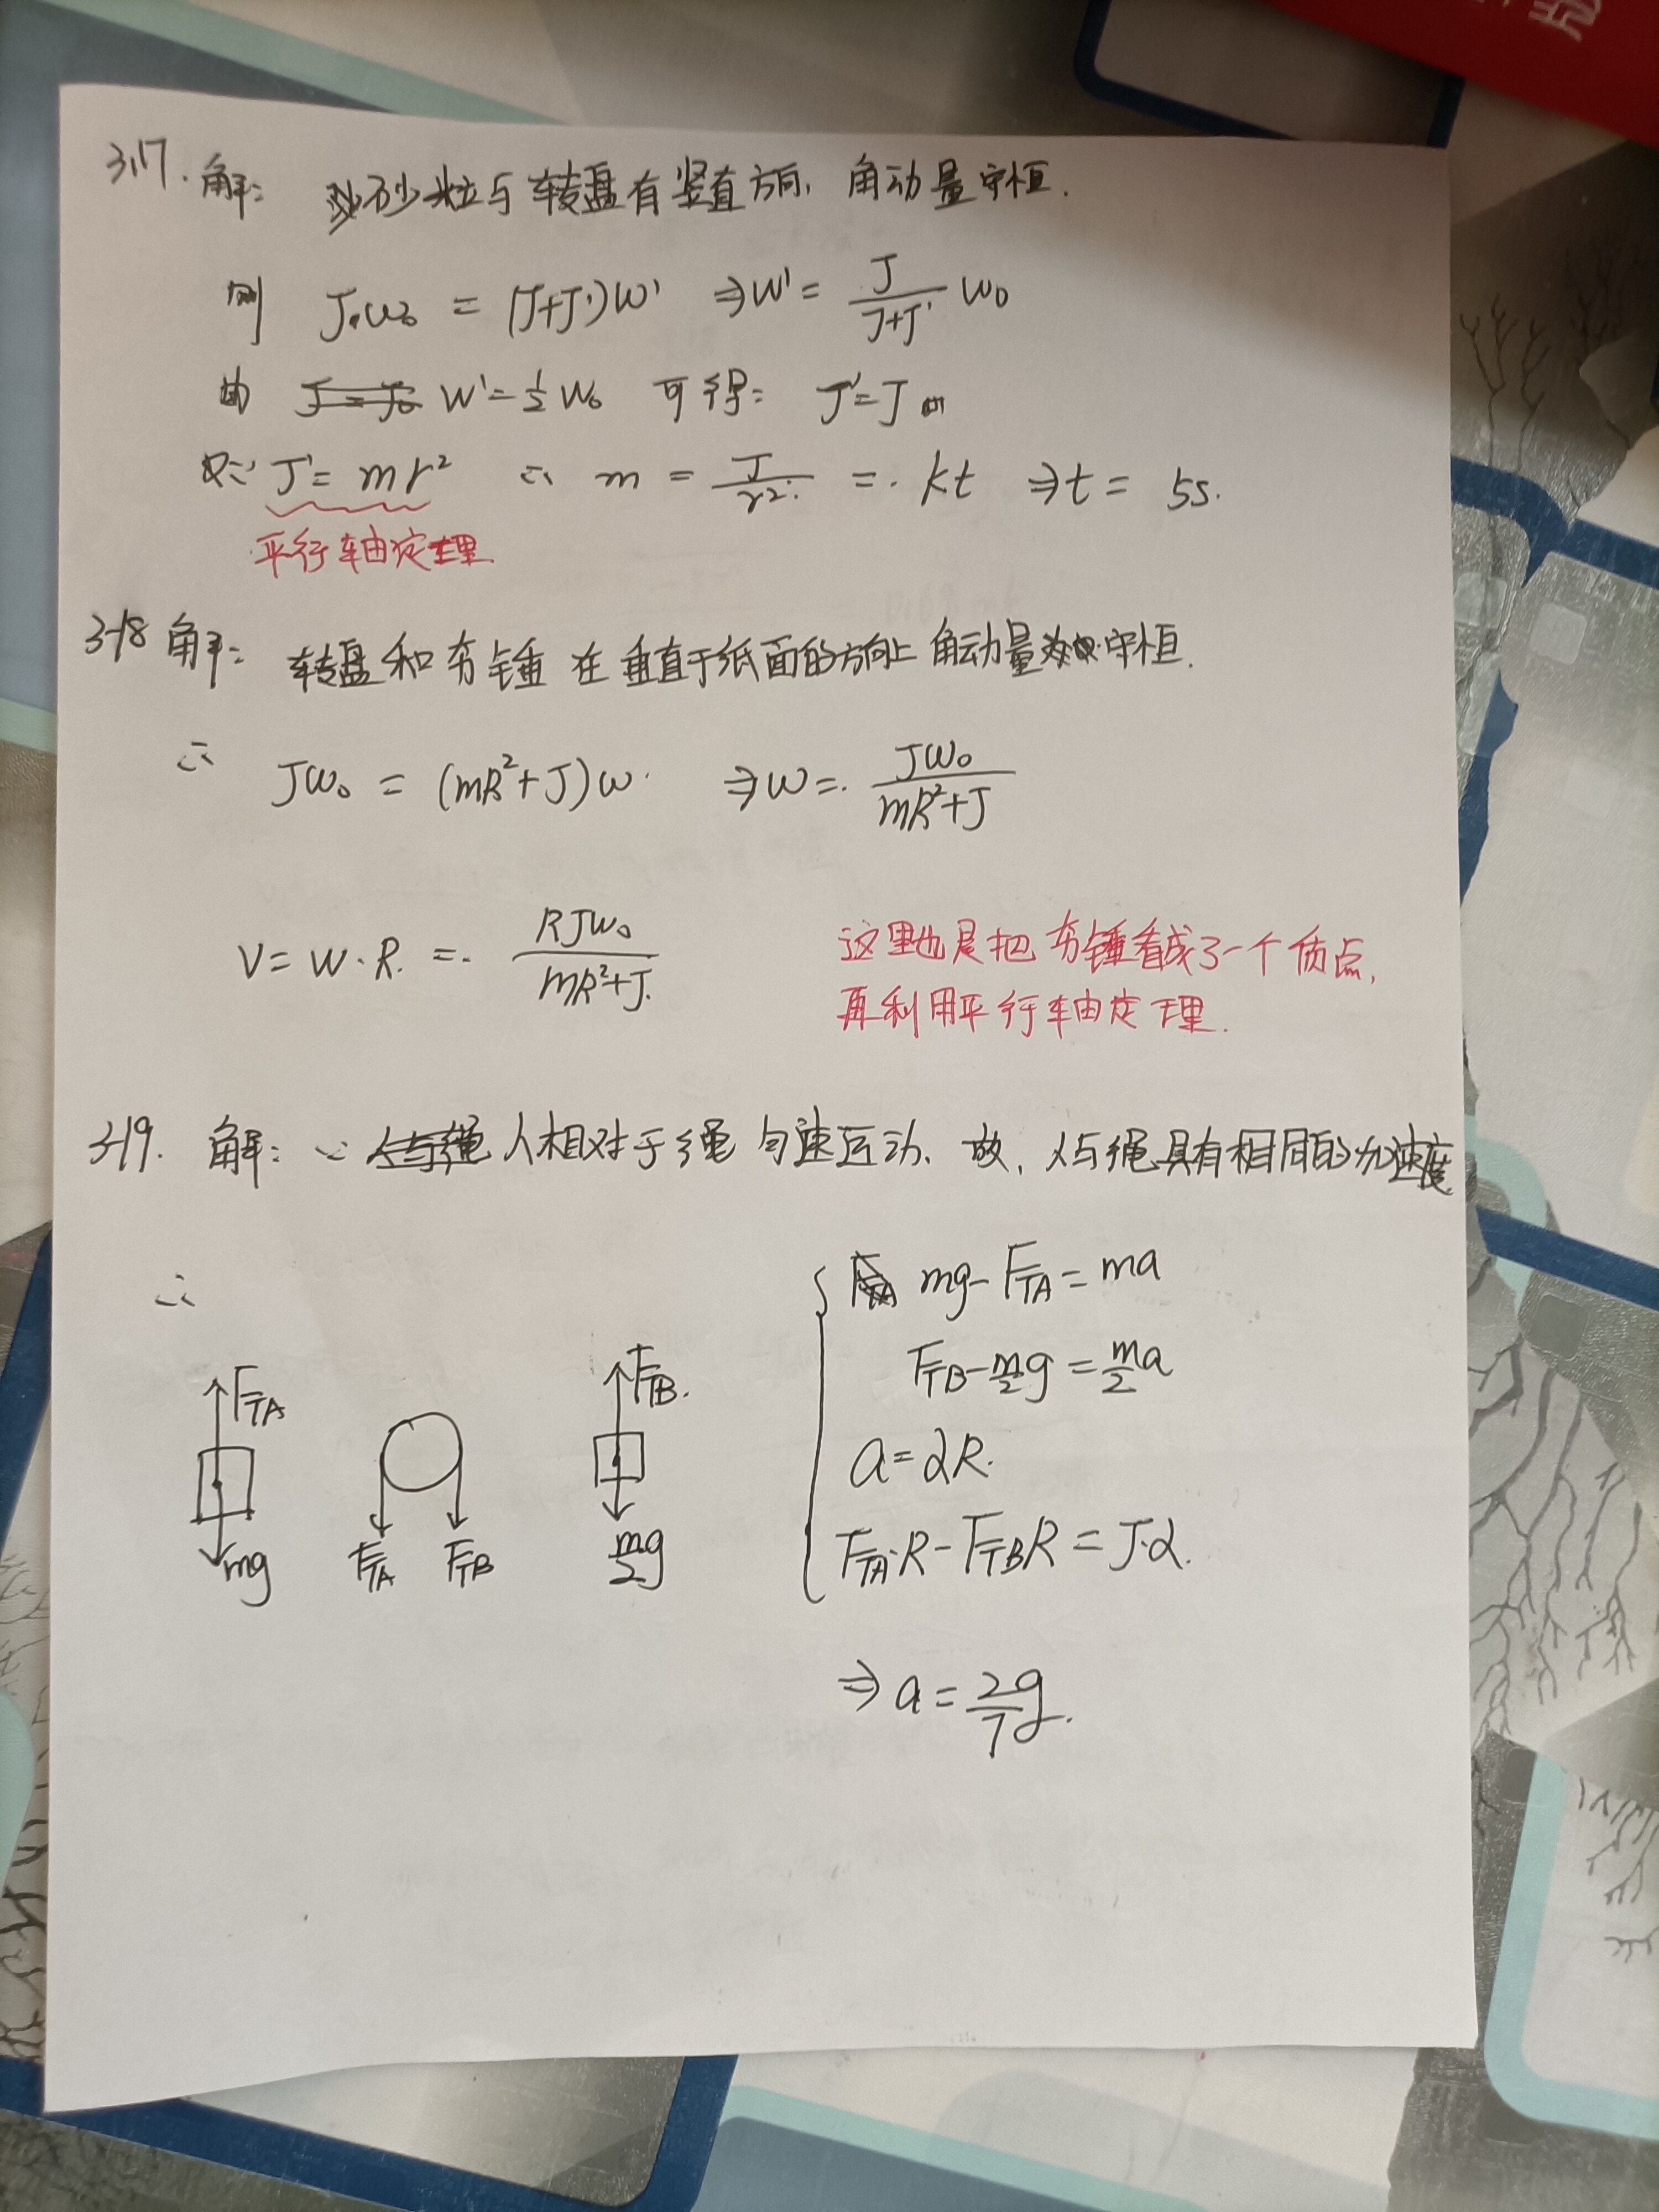 3.17. 解: 砂粒与转盘有竖直方向, 角动量守恒.
则 J·ω₀ = (J+J')ω' ⇒ω' = J/(J+J') ω₀
由 ω'=½ω₀ 可得: J'=J
又∵ J'=mr² ∴ m = J/r² = kt ⇒t = 5s.
平行轴定理
3-18 解: 转盘和夯锤在垂直于纸面的方向上角动量守恒.
∴ Jω₀ = (mR²+J)ω ⇒ω = Jω₀/(mR²+J)
V=ω·R = RJω₀/(mR²+J)
这里也是把夯锤看成了一个质点,
再利用平行轴定理.
3-19. 解: ∵ 人相对于绳匀速运动, 故, 人与绳具有相同的加速度
∴
F_TA
mg
F_TA F_TB
F_TB
m/2 g
mg-F_TA=ma
F_TB-m/2 g=m/2 a
a=αR.
F_TA·R-F_TB R=J·α.
⇒a=2g/7.